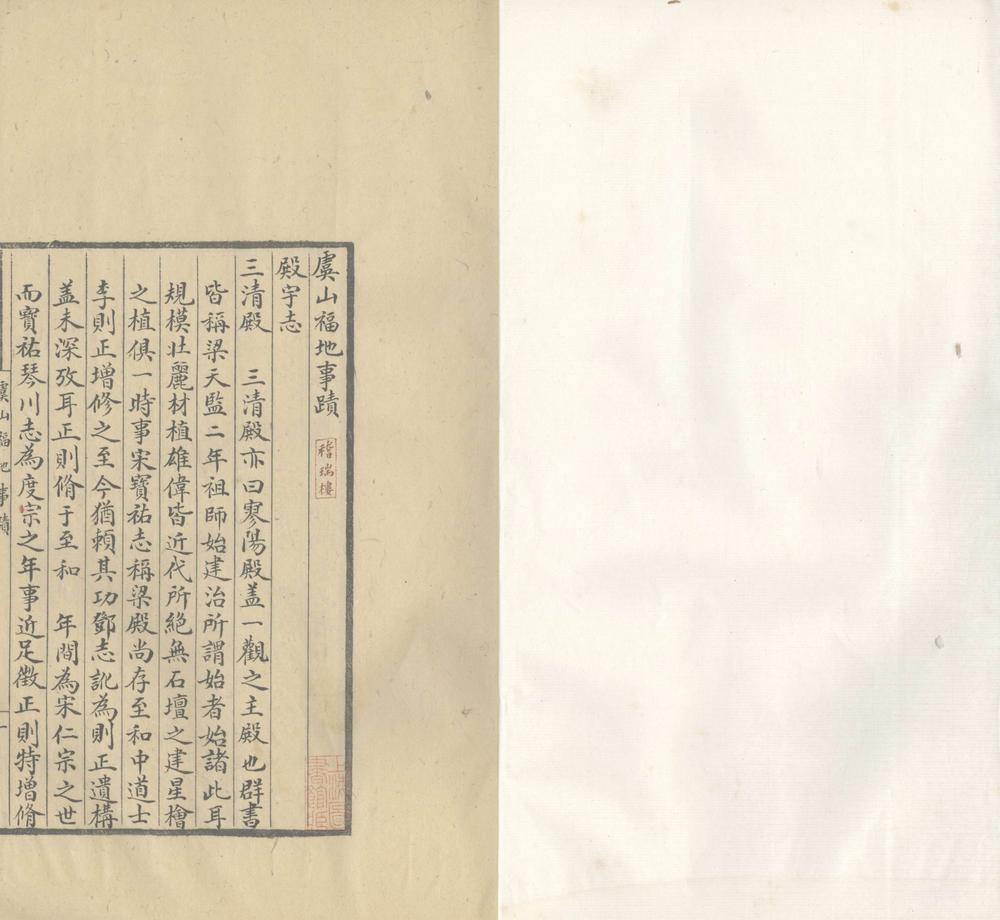 虞山福地事蹟
稽瑞樓
殿宇志
三清殿　三清殿亦曰寥陽殿盖一觀之主殿也群書
皆稱梁天監二年祖師始建治所謂始者始諸此耳
規模壯麗材植雄偉皆近代所絕無石壇之建星檜
之植俱一時事宋寶祐志稱梁殿尚存至和中道士
李則正增修之至今猶賴其功鄧志訛為則正遺構
盖未深攷耳正則脩于至和　年間為宋仁宗之世
而寶祐琴川志為度宗之年事近足徵正則特增脩
虞山福地事蹟
一